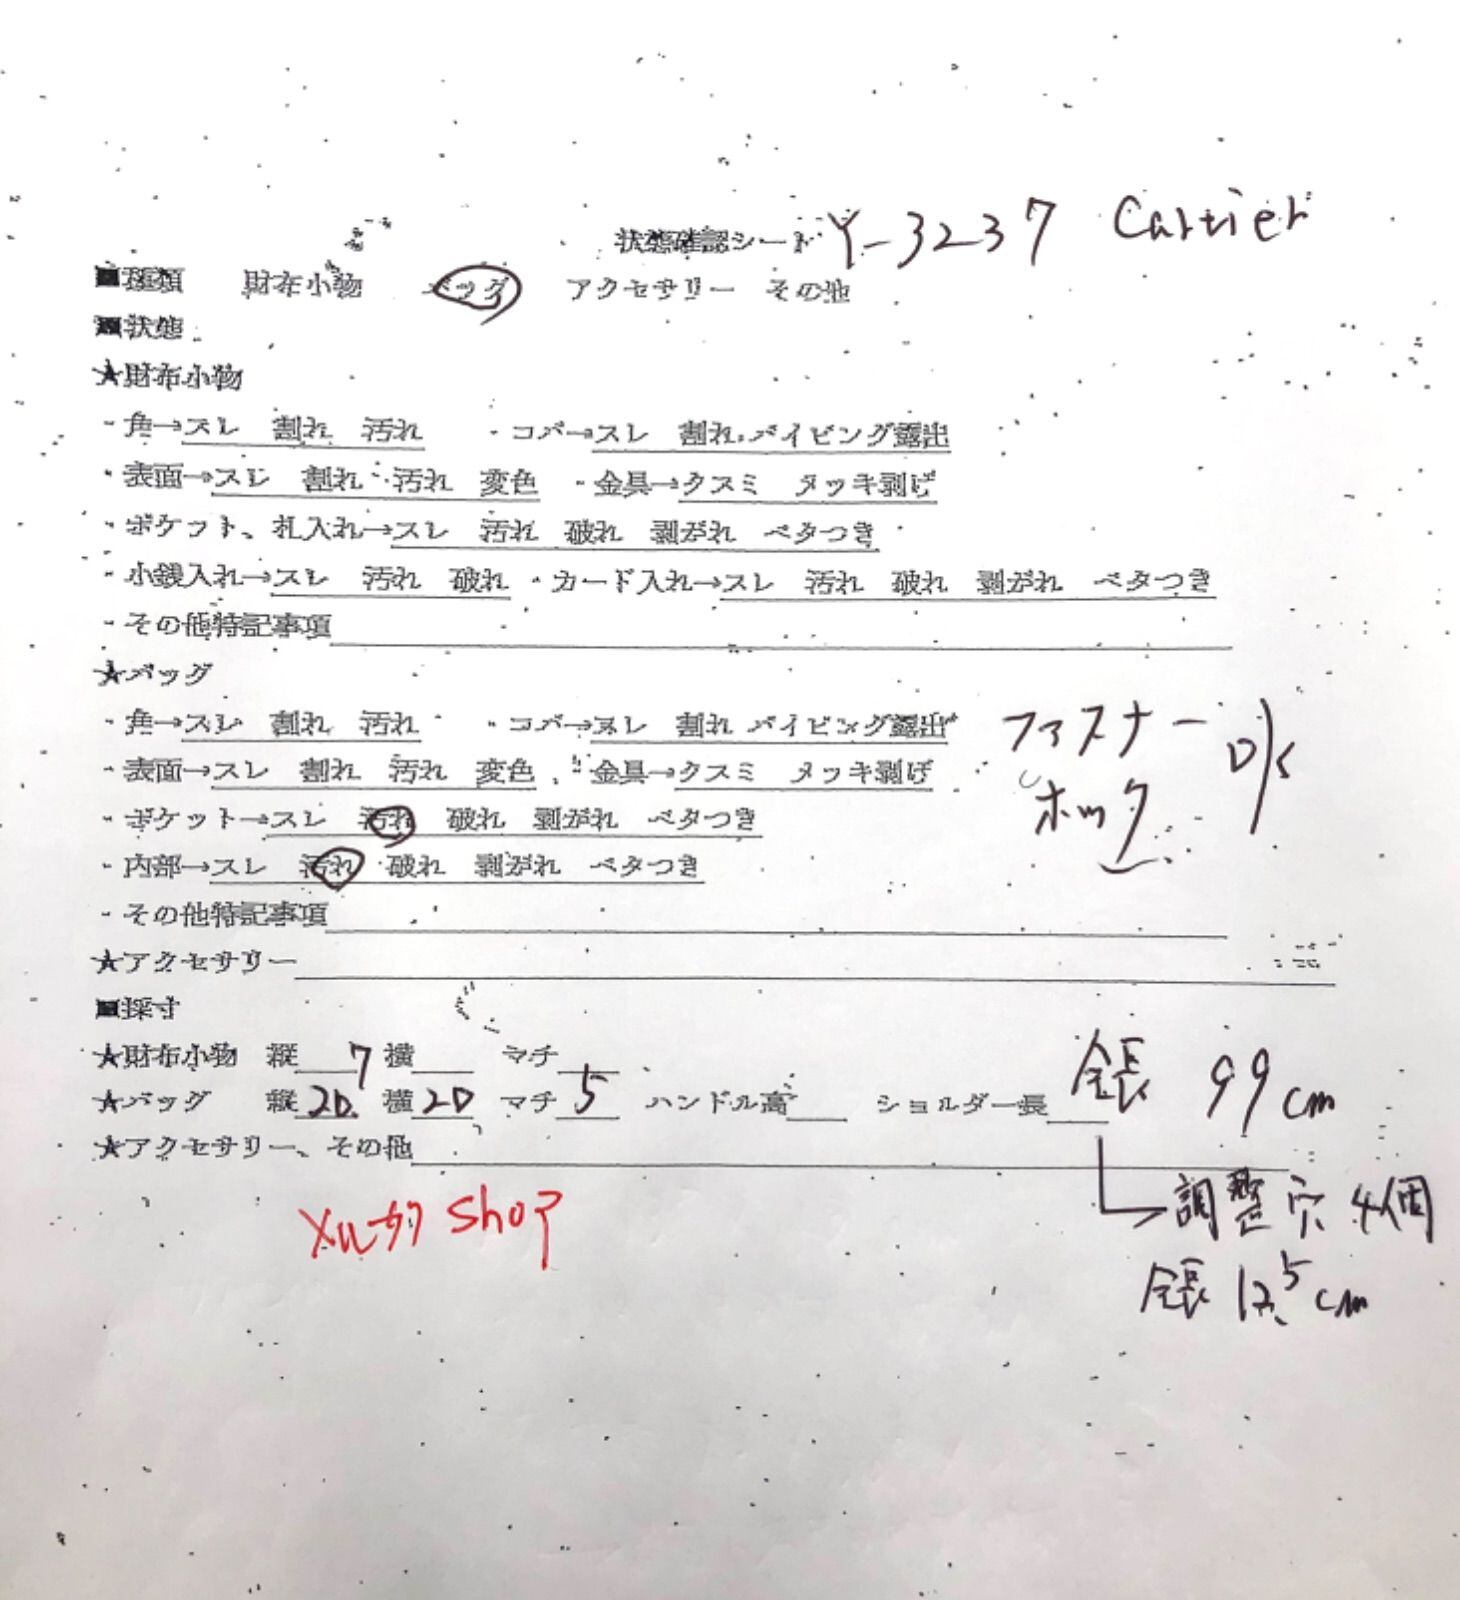 状態確認シート Y-3237 Cartier
■種類 財布小物 バッグ アクセサリー その他
■状態
★財布小物
・角→スレ 割れ 汚れ ・コバ→スレ 割れ パイピング露出
・表面→スレ 割れ 汚れ 変色 ・金具→クスミ メッキ剥げ
・ポケット、札入れ→スレ 汚れ 破れ 剥がれ ベタつき
・小銭入れ→スレ 汚れ 破れ ・カード入れ→スレ 汚れ 破れ 剥がれ ベタつき
・その他特記事項
★バッグ
・角→スレ 割れ 汚れ ・コバ→スレ 割れ パイピング露出
・表面→スレ 割れ 汚れ 変色 ・金具→クスミ メッキ剥げ
ファスナー
ホック
OK
・ポケット→スレ 汚れ 破れ 剥がれ ベタつき
・内部→スレ 汚れ 破れ 剥がれ ベタつき
・その他特記事項
★アクセサリー
■採寸
★財布小物 縦 7 横 マチ
★バッグ 縦 20 横 20 マチ 5 ハンドル高 ショルダー長 全長 99cm
★アクセサリー、その他
調整穴 4個
全長 12.5cm
メルカリ shop